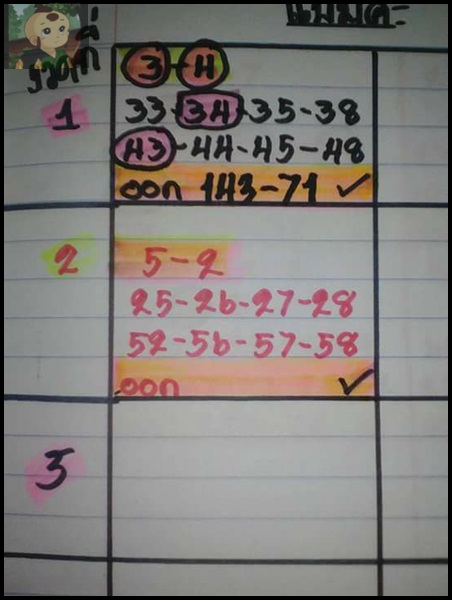 แม่มดะ
งวดที่
1
3-4
33-34-35-38
43-44-45-48
ออก 143-71 ✓
2
5-2
25-26-27-28
52-56-57-58
ออก ✓
3